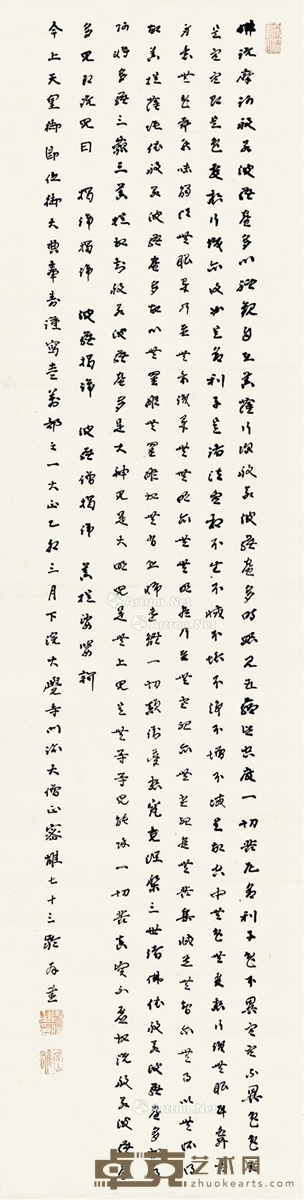 佛説摩訶般若波羅蜜多心經觀自在菩薩行深般若波羅蜜多時照見五蘊皆空度一切苦厄舍利子色不異空空不異色色即
是空空即是色受想行識亦復如是舍利子是諸法空相不生不滅不垢不淨不增不減是故空中無色無受想行識無眼耳鼻舌
身意無色聲香味觸法無眼界乃至無意識界無無明亦無無明盡乃至無老死亦無老死盡無苦集滅道無智亦無得以無所得
故菩提薩埵依般若波羅蜜多故心無罣礙無罣礙故無有恐怖遠離一切顛倒夢想究竟涅槃三世諸佛依般若波羅蜜多故得
阿耨多羅三藐三菩提故知般若波羅蜜多是大神咒是大明咒是無上咒是無等等咒能除一切苦真實不虛故說般若波羅蜜
多咒即說咒曰 揭諦揭諦 波羅揭諦 波羅僧揭諦 菩提娑婆訶
今上天皇御即位御大典奉壽謹寫壹萬部之一大正乙卯三月下浣大覺寺門跡大僧正密雄七十三齡拜書
Artron.Net
卓克艺术网
zhuokearts.com